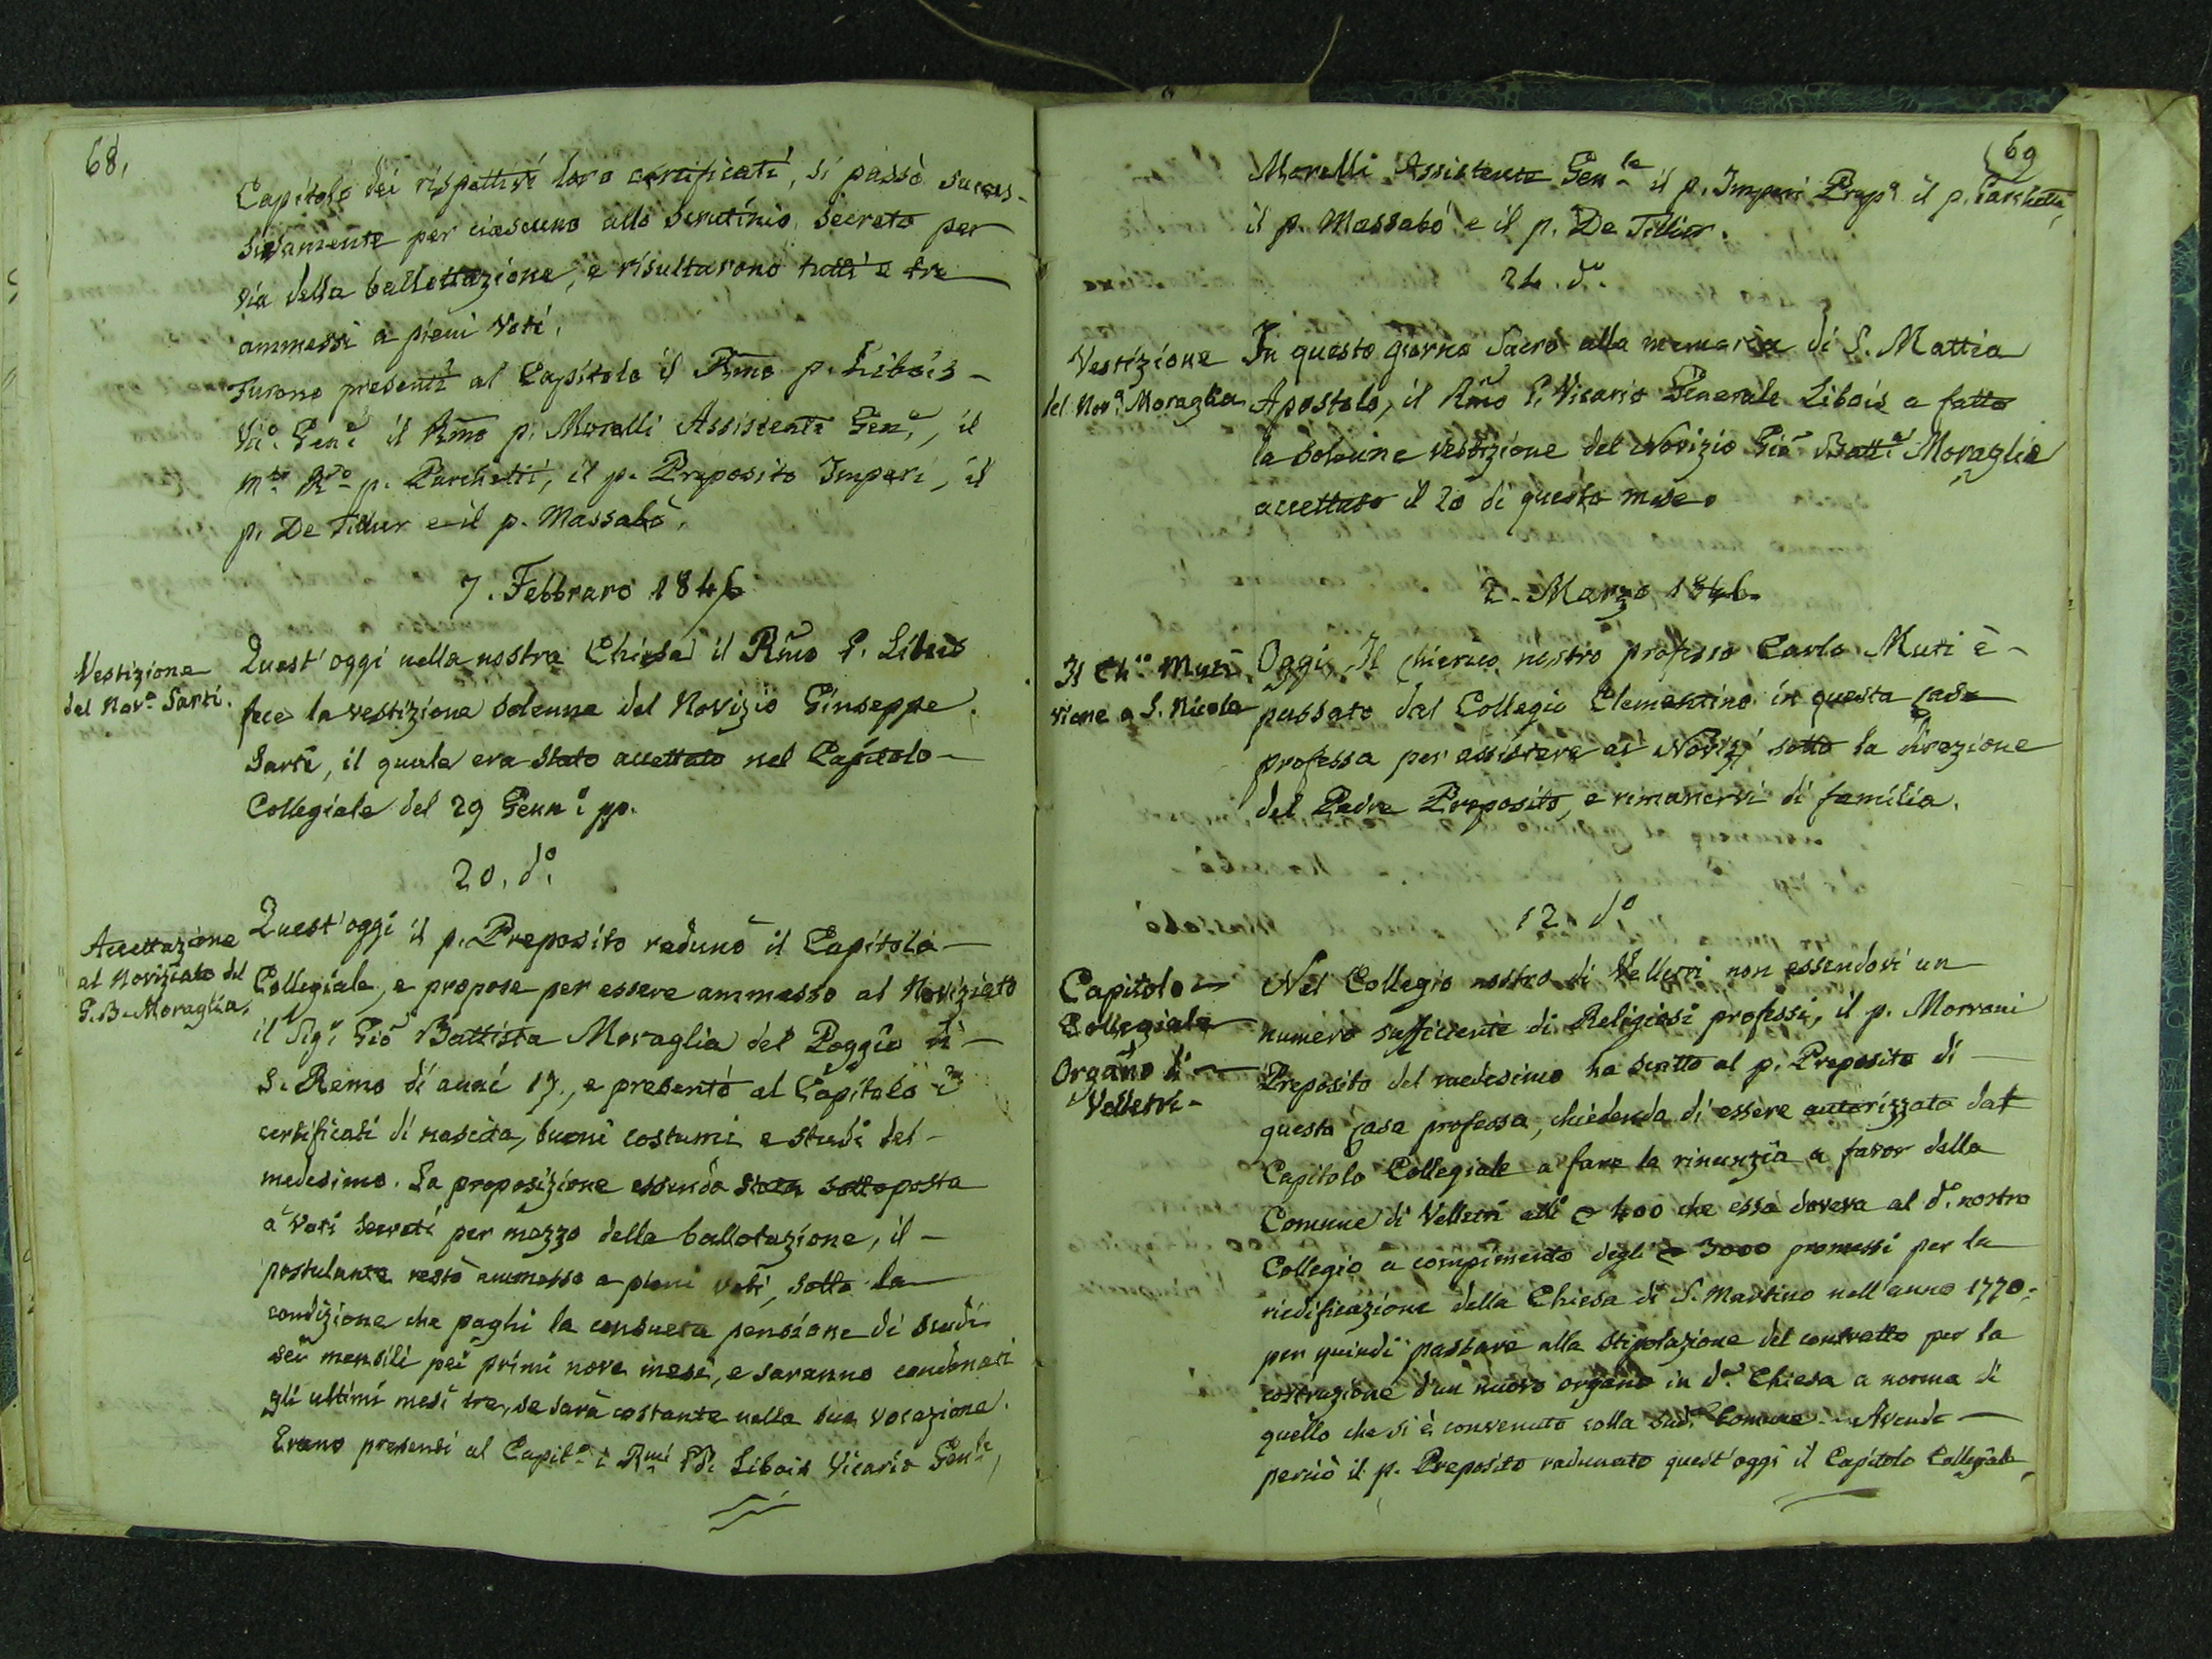 68.
Capitolo dei rispettivi loro certificati, si passò succes-
sivamente per ciascuno allo scrutinio secreto per
via della ballottazione, e risultarono tutti e tre
ammessi a pieni voti.
Furono presenti al Capitolo il Rmo p. Libois -
Vic. Gen.e il Rmo p. Morelli Assistente Gen.e, il
M.to R.do p. Parchetti, il p. Preposito Imperi, il
p. De Tillier e il p. Massabò.
7. Febbraro 1846
Vestizione
del Nov.o Sarti.
Quest'oggi nella nostra Chiesa il Rmo P. Libois
fece la vestizione solenne del Novizio Giuseppe
Sarti, il quale era stato accettato nel Capitolo -
Collegiale del 29 Genn.o pp.
20. d.o
Accettazione
al Noviziato del
G.B. Moraglia.
Quest'oggi il p. Preposito radunò il Capitolo -
Collegiale, e propose per essere ammesso al Noviziato
il Sig.r Gio Battista Moraglia del Poggio di -
S. Remo di anni 17., e presentò al Capitolo i
certificati di nascita, buoni costumi e studi del -
medesimo. La proposizione essendo stata sottoposta
a' voti secreti per mezzo della ballotazione, il -
postulante restò ammesso a pieni voti, sotto la
condizione che paghi la consueta pensione di scudi
sei mensili pei primi nove mesi, e saranno condonati
gli ultimi mesi tre, se sarà costante nella sua vocazione.
Erano presenti al Capit.o i R.mi PP. Libois Vicario Gen.le,
69
Morelli Assistente Gen.le il p. Imperi Prep.o il p. Parchetti,
il p. Massabò e il p. De Tillier.
24. d.o
Vestizione
del Nov.o Moraglia
In questo giorno sacro alla memoria di S. Mattia
Apostolo, il Rmo P. Vicario Generale Libois a fatto
la solenne vestizione del Novizio Gio Batt.a Moraglia
accettato il 20 di questo mese.
2. Marzo 1846.
Il Ch.co Muti
viene a S. Nicola
Oggi Il chierico nostro professo Carlo Muti è -
passato dal Collegio Clementino in questa casa
professa per assistere ai Novizj sotto la direzione
del Padre Preposito, e rimanervi di familia.
12. d.o
Capitolo
Collegiale
Organo di
Velletri -
Nel Collegio nostro di Velletri non essendovi un
numero sufficiente di Religiosi professi, il p. Morroni
Preposito del medesimo ha scritto al p. Preposito di
questa casa professa, chiedendo di essere autorizzato dal
Capitolo Collegiale a fare la rinunzia a favor della
Comune di Velletri alli 400 che essa doveva al d.o nostro
Collegio a compimento degli 3000 promessi per la
riedificazione della Chiesa di S. Martino nell'anno 1770.
per quindi passare alla stipolazione del contratto per la
costruzione d'un nuovo organo in d.a Chiesa a norma di
quello che si è convenuto colla sud.a Comune. Avendo
perciò il p. Preposito radunato quest'oggi il Capitolo Collegiale,